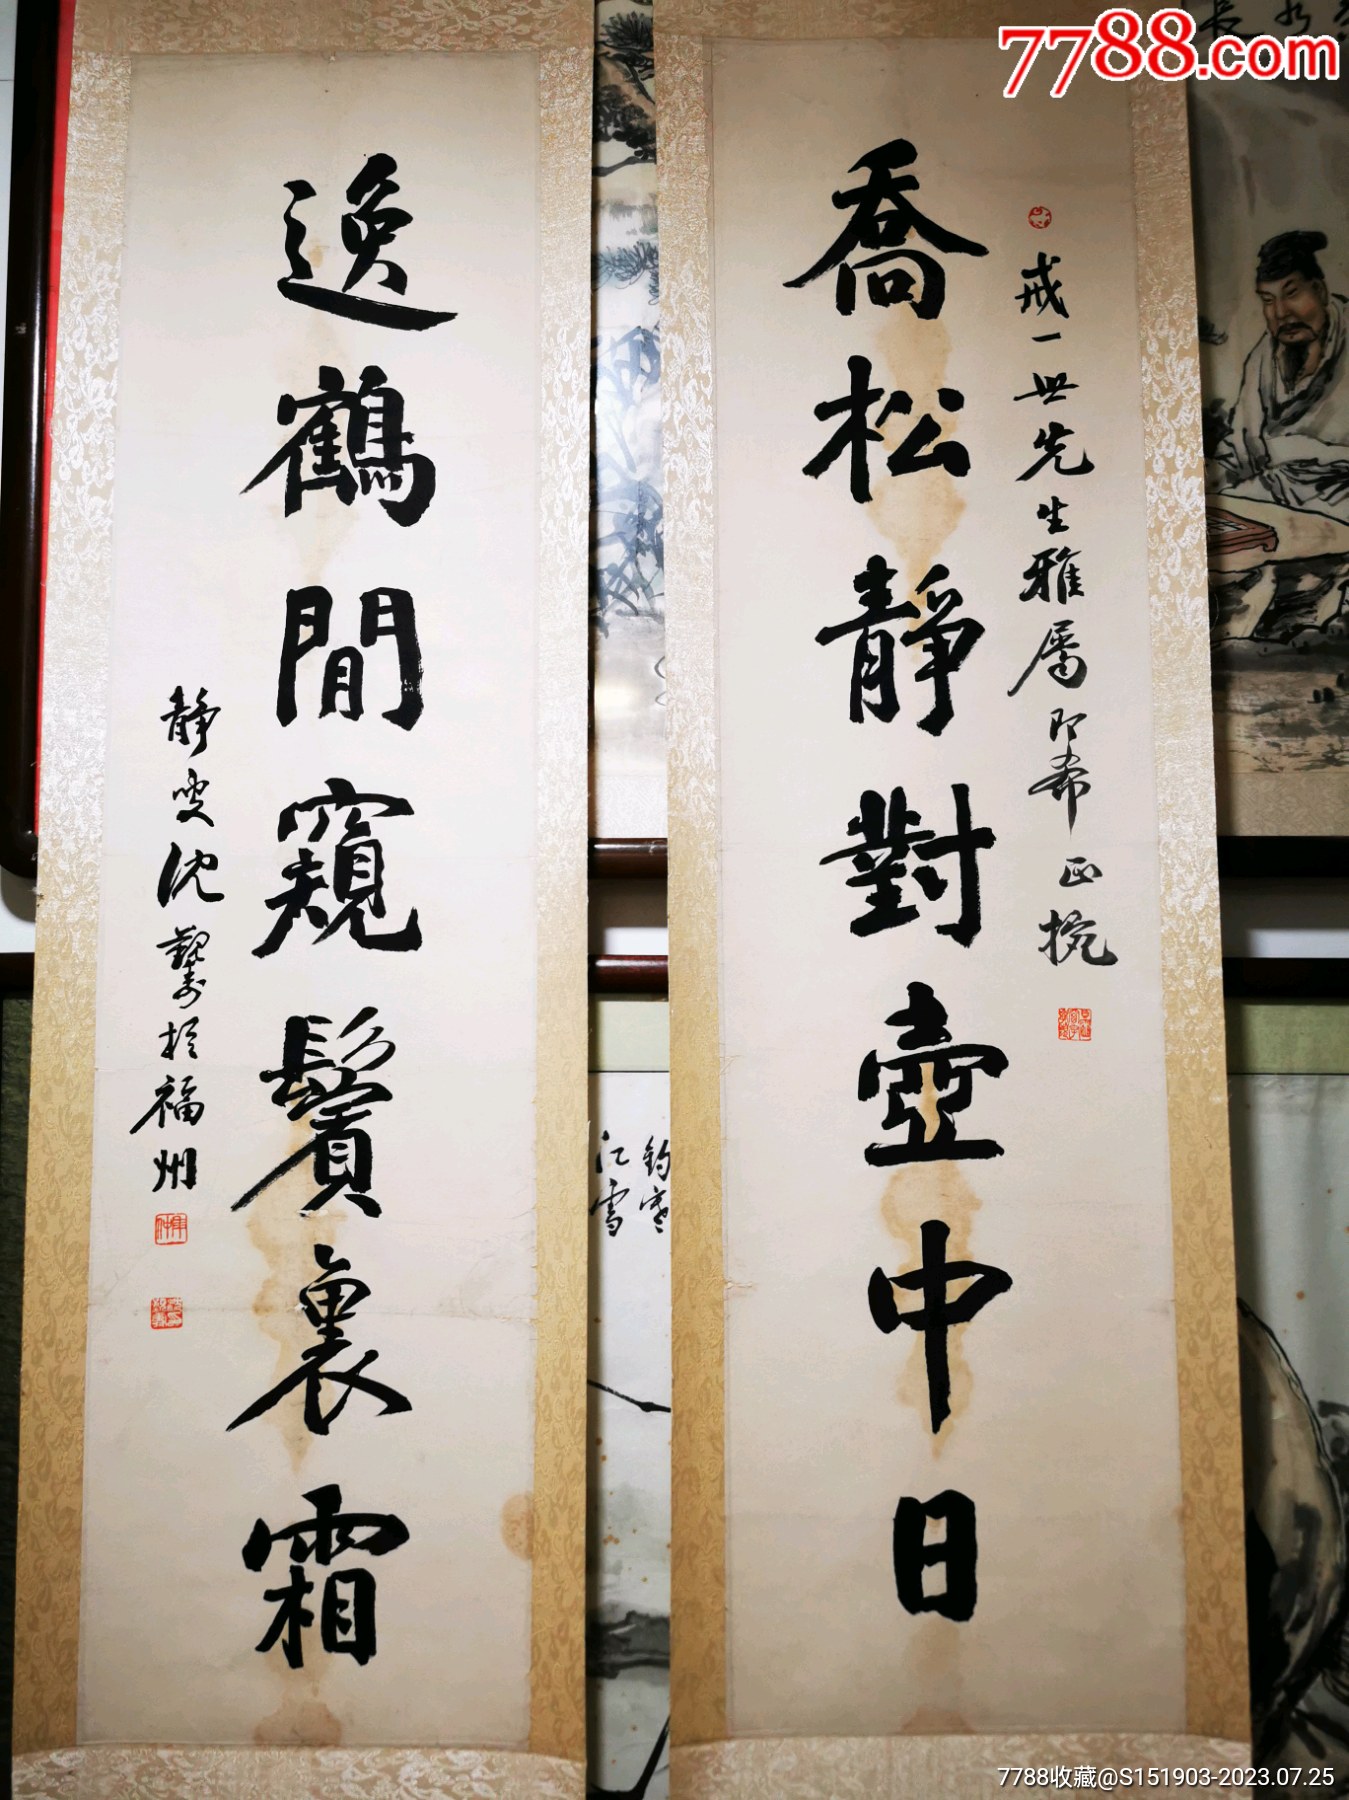 7788.com
戒一世先生雅屬即希正挽
喬松靜對壺中日
逸鶴閒窺鬢裏霜
靜叟沈觀壽於福州
釣寒
江雪
7788收藏@S151903-2023.07.25